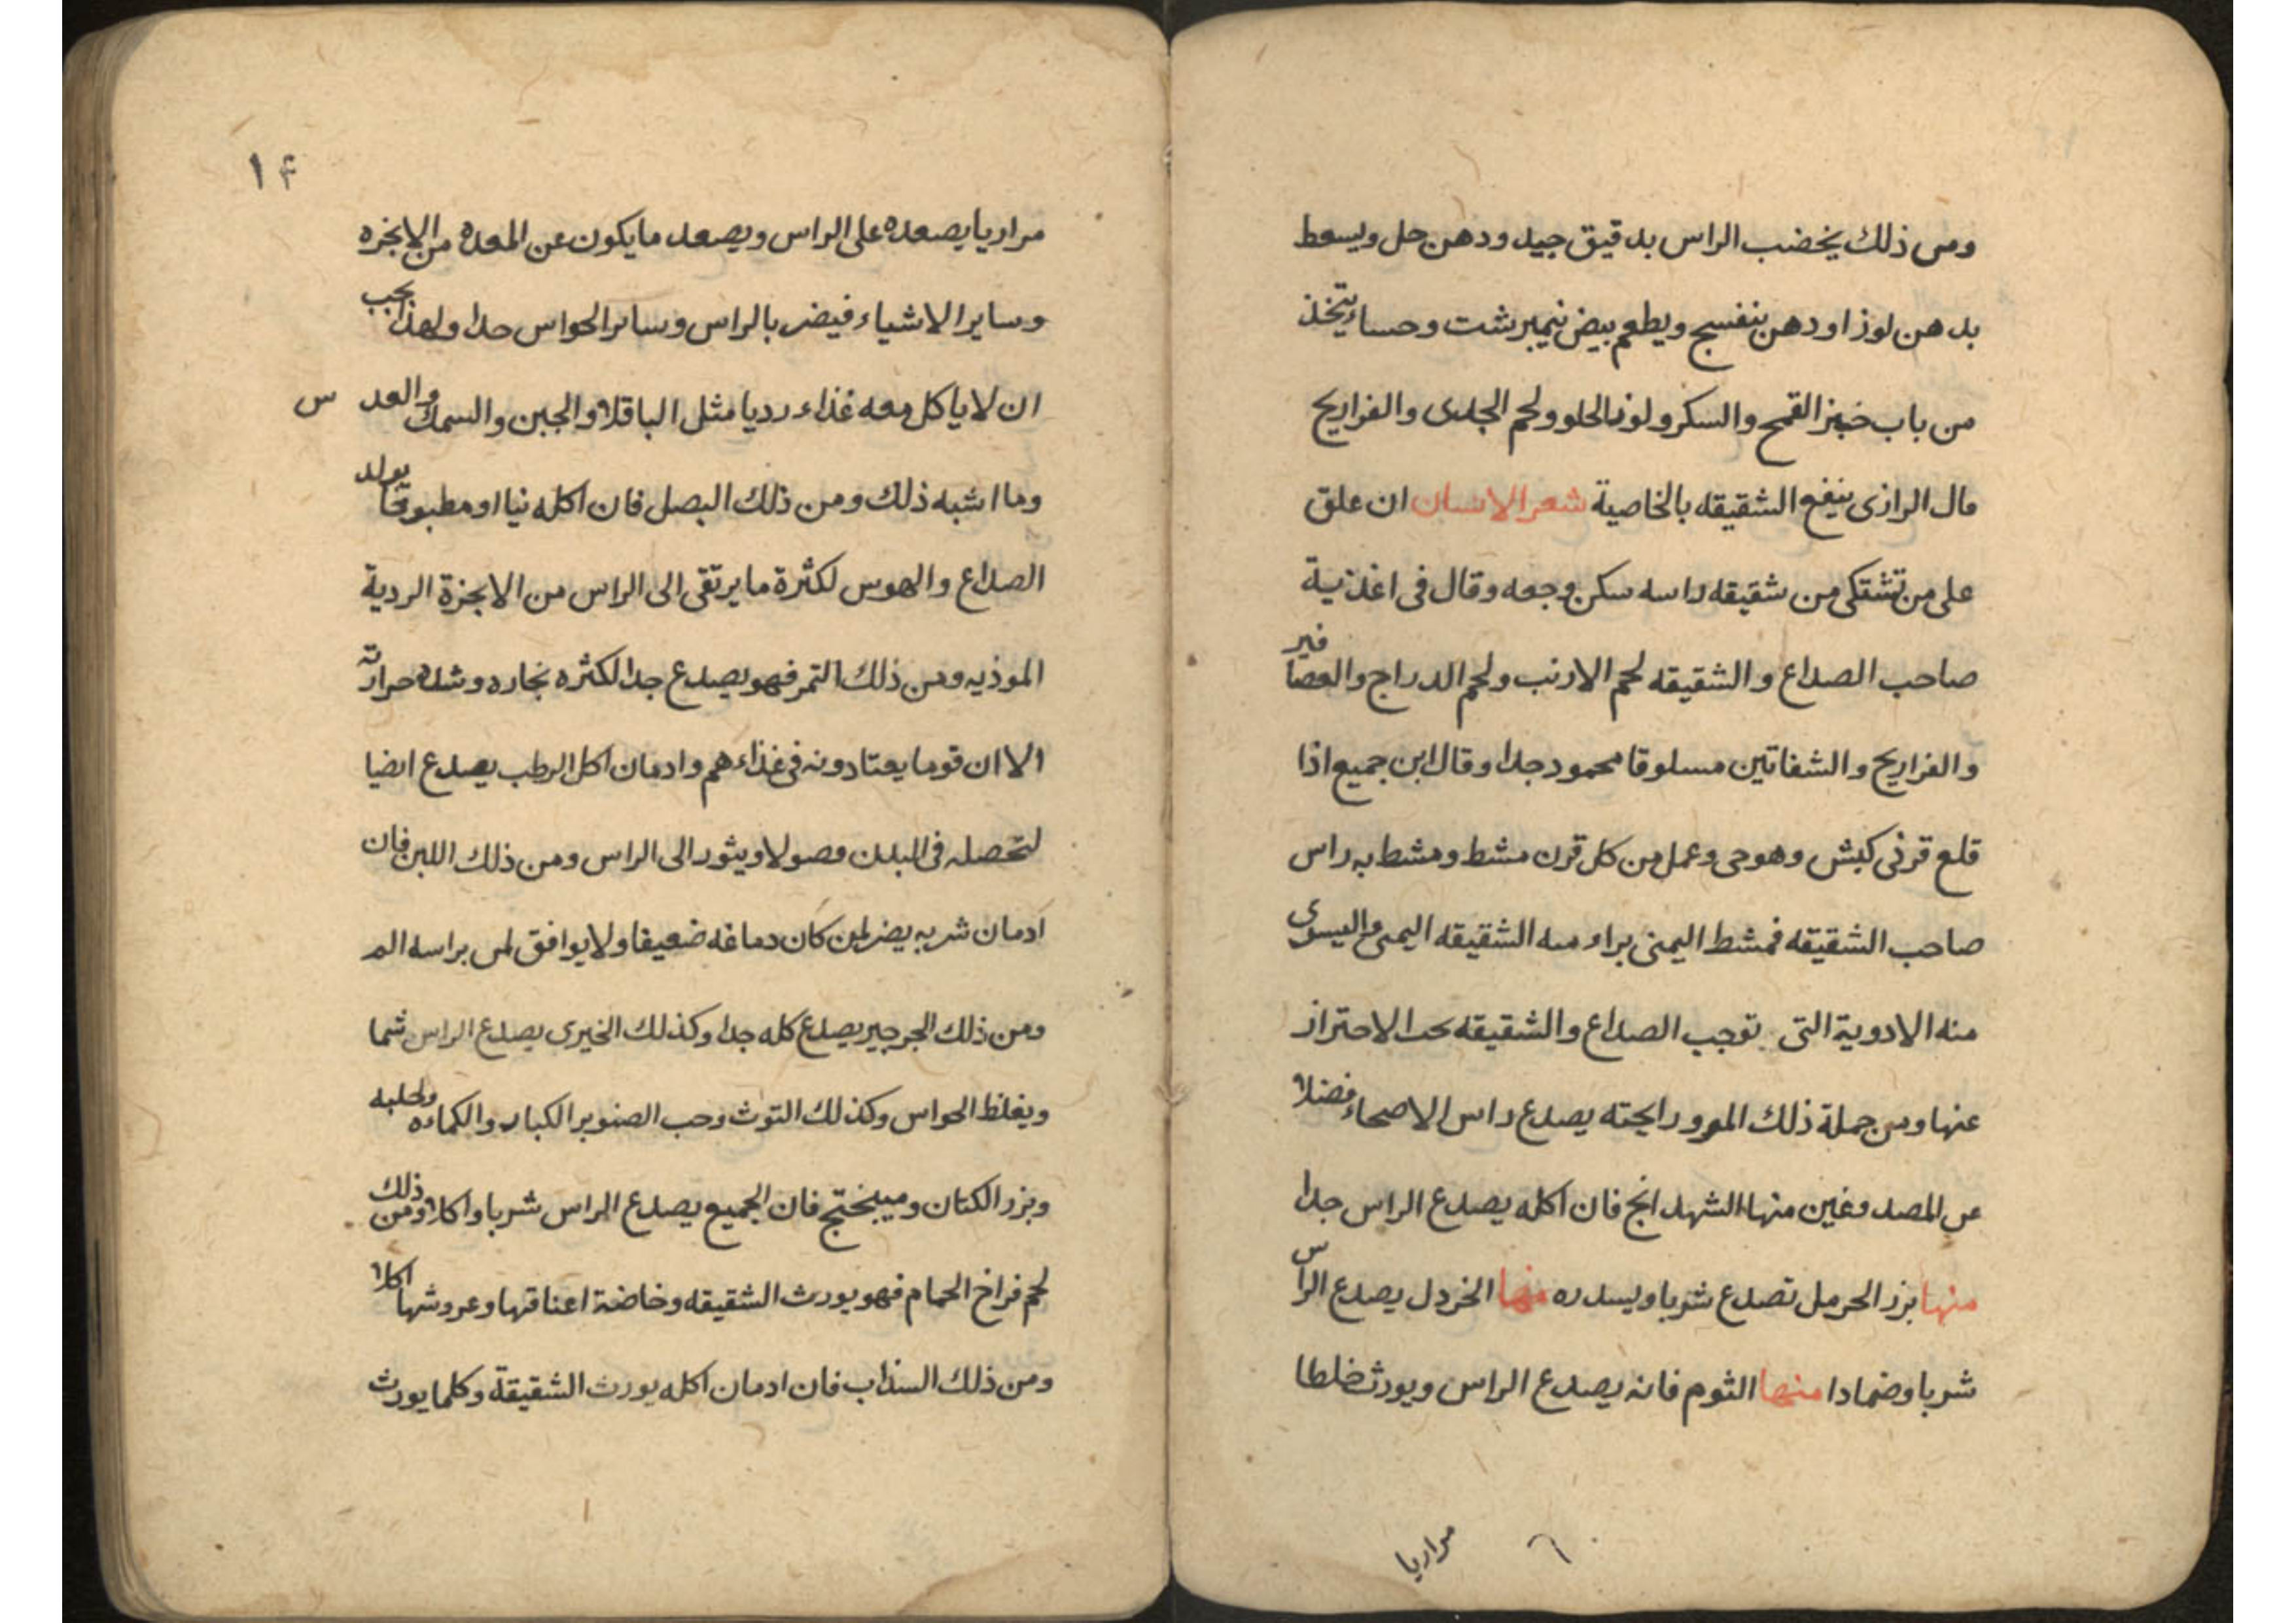 ومن ذلك يخضب الراس بدقيق جيد ودهن حل ويسعط
بدهن لوز او دهن بنفسج ويطعم بيض نيمبرشت وحساء يتخذ
من باب خبز القمح والسكر ولوز الحلو ولحم الجدى والفراريح
مال الرازى ينفع الشقيقه بالخاصية شعر الانسان ان علق
على من تشتكى من شقيقه راسه سكن وجعه وقال فى اغذية
صاحب الصداع والشقيقه لحم الارنب ولحم الدراج والعصافير
والفراريح والشفانين مسلوقا محمود جدا وقال ابن جميع اذا
قلع قرنى كبش وهو حى وعمل من كل قرن مشط ومشط به راس
صاحب الشقيقه فمشط اليمنى براء منه الشقيقه اليمنى واليسرى
منه الادوية التى توجب الصداع والشقيقه الاحتراز
عنها ومن جملة ذلك ورايحته يصدع راس الاصحاء فضلا
عن المصدوعين منها الشهدانج فان اكله يصدع الراس جدا
منها بزر الحرمل تصدع شربا ويسدره منها الخردل يصدع الراس
شربا وضمادا منها الثوم فانه يصدع الراس ويورث خلطا
مراريا
١۴
مراريا يصعده على الراس ويصعد ما يكون عن المعده من الابخره
وساير الاشياء فيضر بالراس وساىر الحواس حدا ولهذا يجب
ان لا ياكل معه غذاء رديا مثل الباقلا والجبن والسمك والعدس
وما اشبه ذلك ومن ذلك البصل فان اكله نيا او مطبوقا يولد
الصداع والهوس لكثرة ما يرتقى الى الراس من الابخرة الردية
الموذيه ومن ذلك التمر فهو يصدع جدا لكثره بخاره وشده حرارته
الا ان قوما يعتادونه فى غذاءهم وادمان اكل الرطب يصدع ايضا
لتحصله فى البدن فصولا ويثور الى الراس ومن ذلك اللبن فان
ادمان شربه يضر لمن كان دماغه ضعيفا ولا يوافق لمن براسه الم
ومن ذلك الجرجير يصدع كله جدا وكذلك الخيرى يصدع الراس شما
ويغلظ الحواس وكذلك التوث وحب الصنوبر الكبار والكماءه ولحلبه
وبزر الكتان وميبختج فان الجميع يصدع الراس شربا واكلا ومن ذلك
لحم فراخ الحمام فهو يورث الشقيقه وخاضة اعناقها وعروشها اكلا
ومن ذلك السذاب فان ادمان اكله يورث الشقيقة وكلما يورث